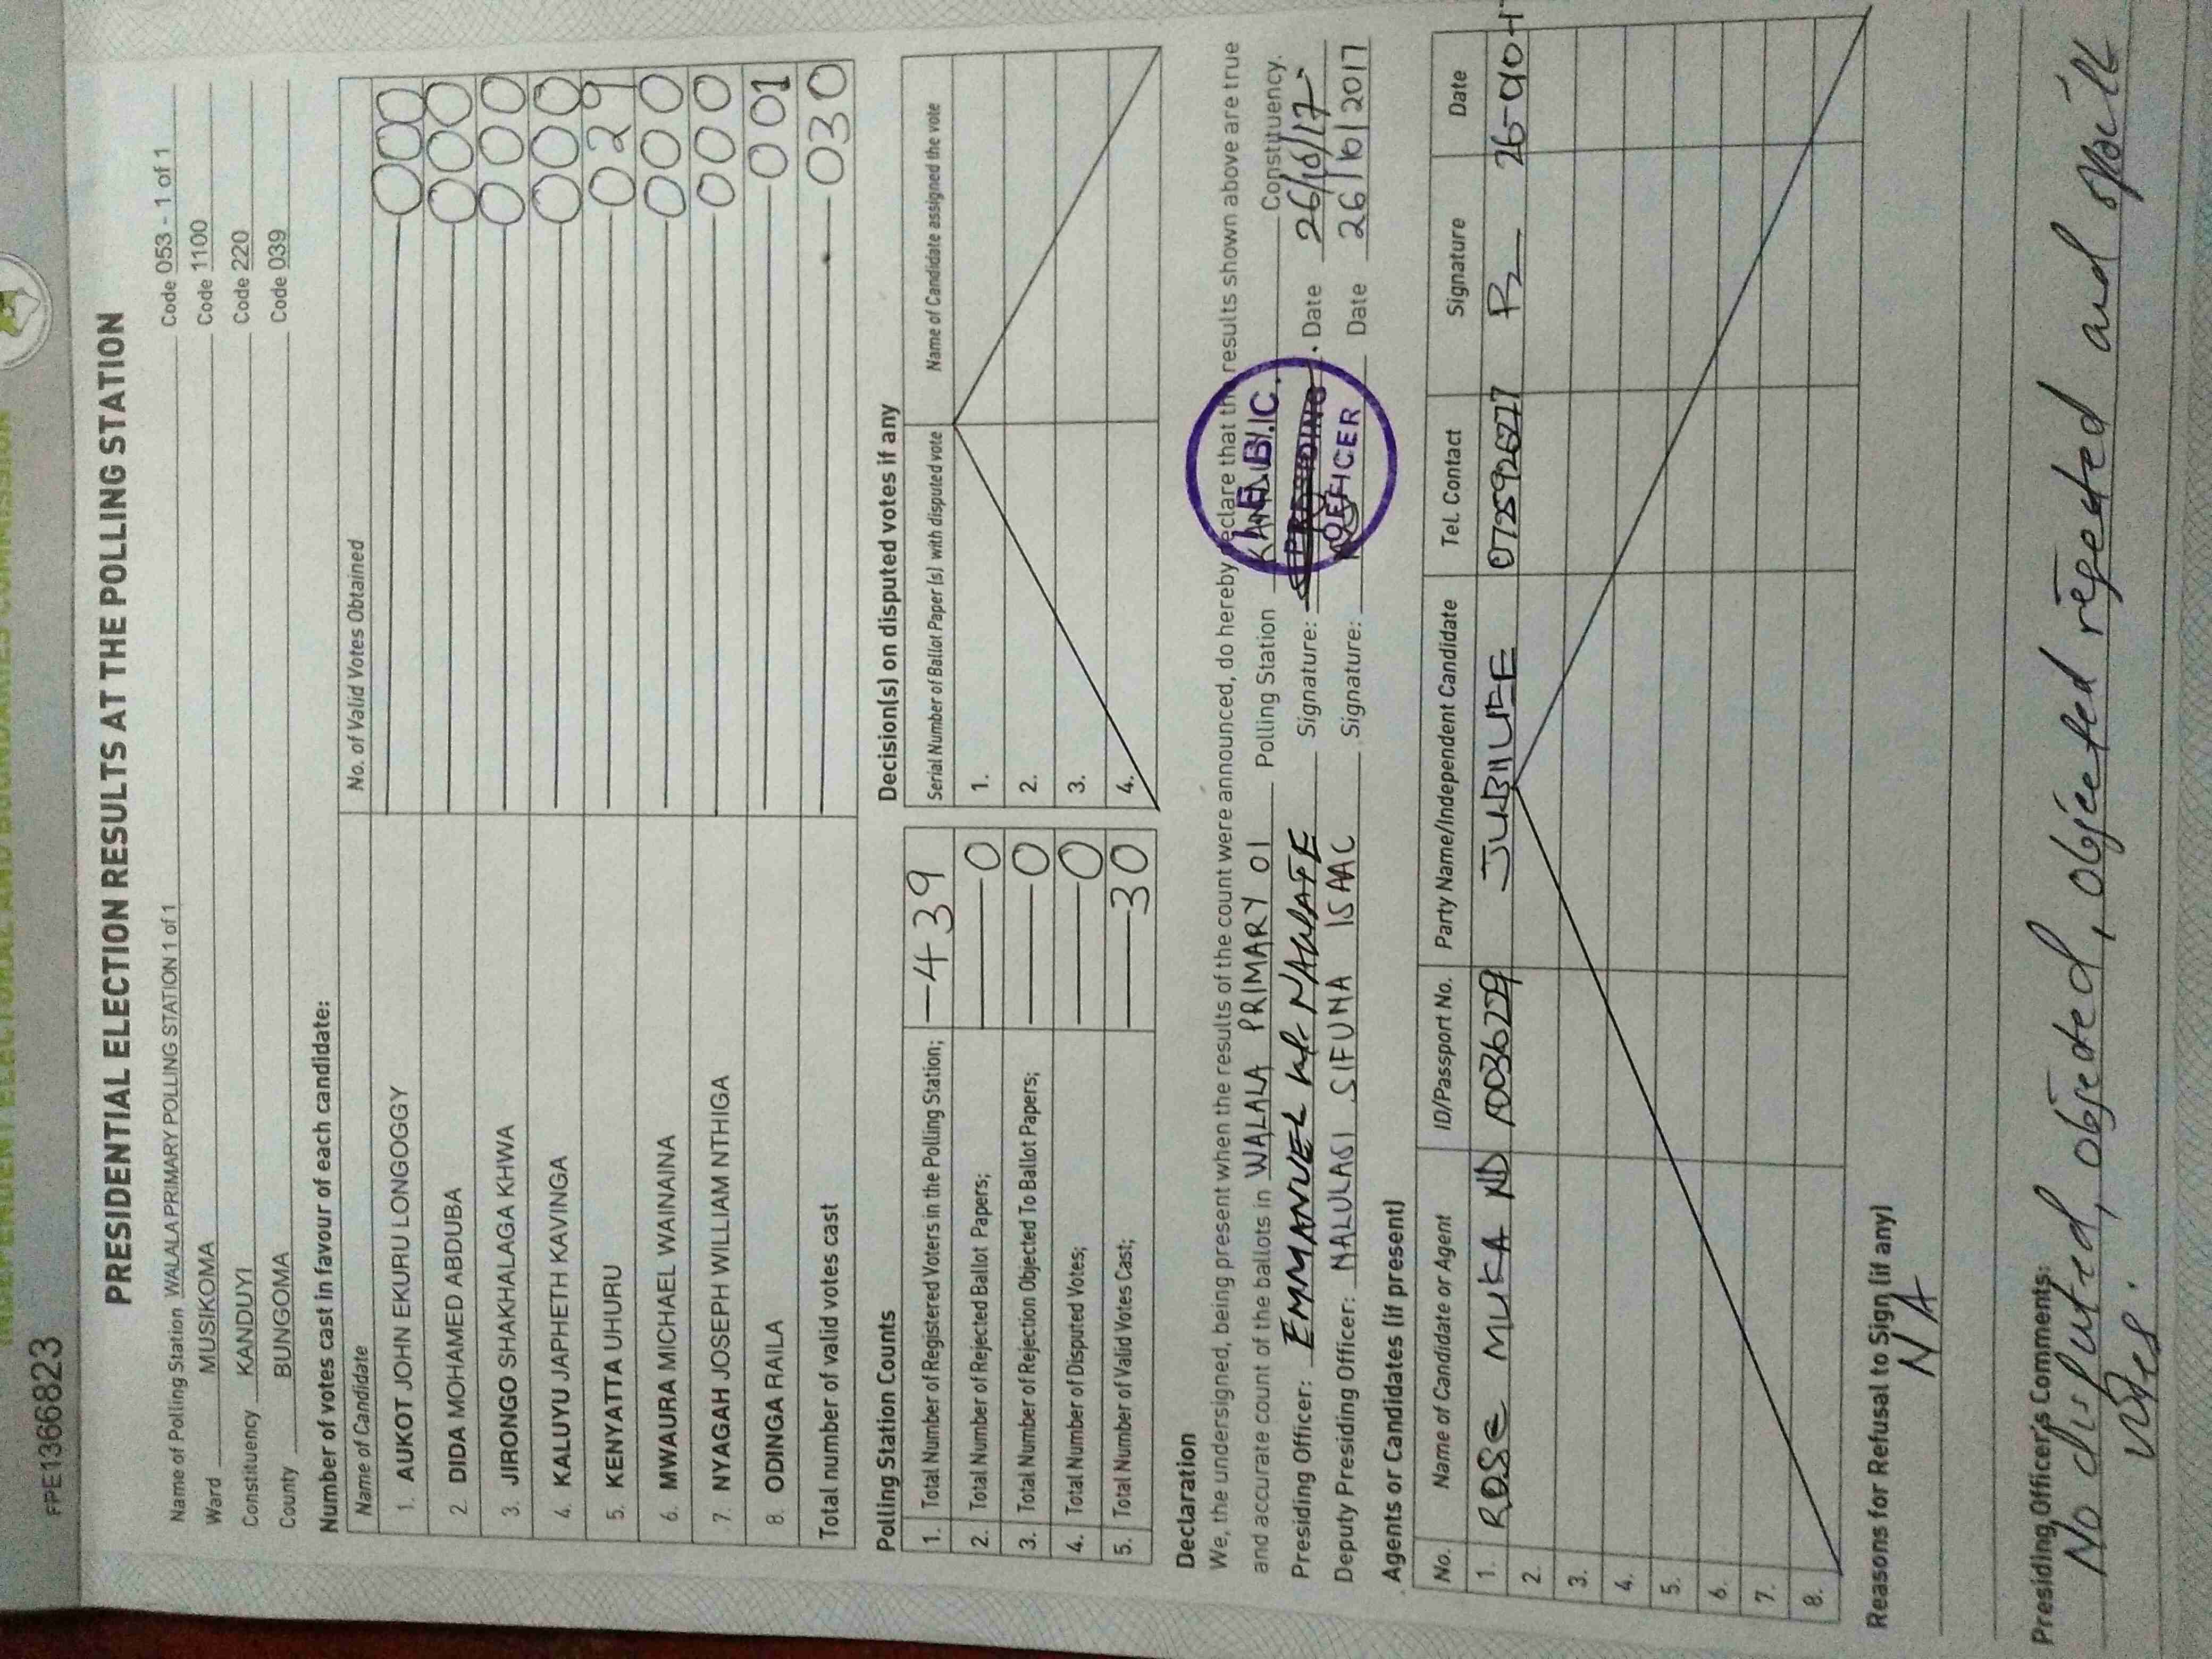 FPE1366823
PRESIDENTIAL ELECTION RESULTS AT THE POLLING STATION
Name of Polling Station WALALA PRIMARY POLLING STATION 1 of 1 Code 053 - 1 of 1
Ward MUSIKOMA Code 1100
Constituency KANDUYI Code 220
County BUNGOMA Code 039
Number of votes cast in favour of each candidate:
Name of Candidate No. of Valid Votes Obtained
1. AUKOT JOHN EKURU LONGOGGY 000
2 DIDA MOHAMED ABDUBA 000
3. JIRONGO SHAKHALAGA KHWA 000
4. KALUYU JAPHETH KAVINGA 000
5. KENYATTA UHURU 029
6. MWAURA MICHAEL WAINAINA 000
7. NYAGAH JOSEPH WILLIAM NTHIGA 000
8. ODINGA RAILA 001
Total number of valid votes cast 030
Polling Station Counts
1. Total Number of Registered Voters in the Polling Station; 439
2. Total Number of Rejected Ballot Papers; 0
3. Total Number of Rejection Objected To Ballot Papers; 0
4. Total Number of Disputed Votes; 0
5. Total Number of Valid Votes Cast; 30
Decision(s) on disputed votes if any
Serial Number of Ballot Paper (s) with disputed vote Name of Candidate assigned the vote
1.
2.
3.
4.
Declaration
We, the undersigned, being present when the results of the count were announced, do hereby declare that the results shown above are true
and accurate count of the ballots in WALALA PRIMARY 01 Polling Station Constituency.
Presiding Officer: EMMANUEL Signature: Date 26/10/17
Deputy Presiding Officer: NALULASI SIFUNA ISAAC Signature: Date 26/10/2017
PRESIDING
OFFICER
Agents or Candidates (if present)
No. Name of Candidate or Agent ID/Passport No. Party Name/Independent Candidate Tel. Contact Signature Date
1. ROSE MUKA JUBILEE
2.
3.
4.
5.
6.
7.
8.
Reasons for Refusal to Sign (if any)
N/A
Presiding Officer's Comments:
No disputed, objected, objected rejected and spoilt
votes.